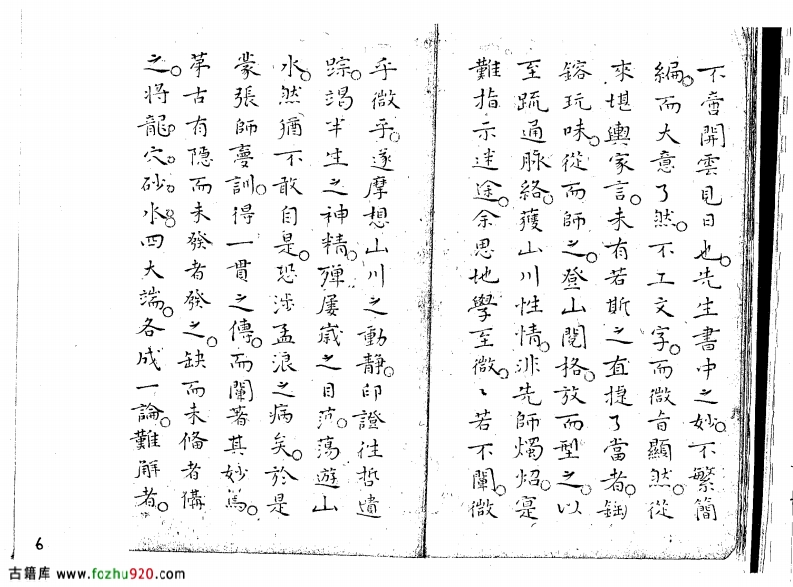 不啻開雲見日也。先生書中之妙。不繁簡
編。而大意了然。不工文字。而微旨顯然。從
來堪輿家言。未有若斯之直捷了當者。鎔
玩味。從而師之。登山閱格。放而型之。以
至疏通脉絡。獲山川性情。非先師燭炤。寔
難指示迷途。余思地學至微。〻若不闡微
乎微乎。遂摩想山川之動靜。印證往哲遺
踪。竭半生之神精。殫屢歲之目范。蕩遊山
水。然猶不敢自是。恐涉孟浪之病矣。於是
蒙張師憂訓。得一貫之傳。而闡著其妙焉。
苐古有隱而未發者發之。缺而未備者備
之。將龍。穴。砂。水。四大端。各成一論。難解者。
6
古籍库 www.fozhu920.com